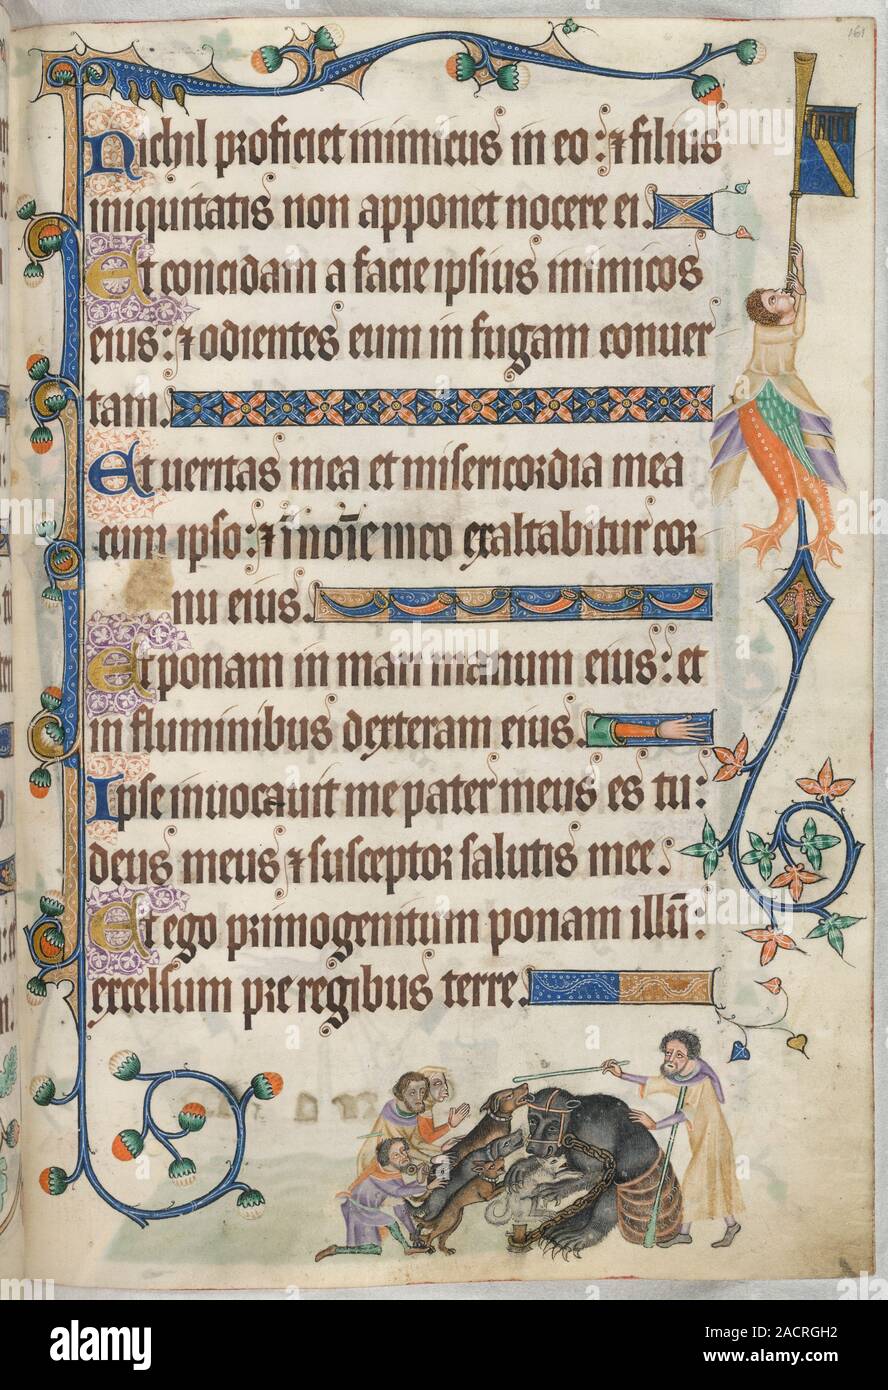 161
Nichil proficiet inimicus in eo: ⁊ filius
iniquitatis non apponet nocere ei.
Et concidam a facie ipsius inimicos
eius: ⁊ odientes eum in fugam conuer
tam.
Et ueritas mea et misericordia mea
cum ipso: ⁊ ī noīe meo exaltabitur cor
nu eius.
Et ponam in mari manum eius: et
in fluminibus dexteram eius.
Ipse inuocauit me pater meus es tu:
deus meus ⁊ susceptor salutis mee.
Et ego primogenitum ponam illū:
excelsum pre regibus terre.
alamy
Image ID: 2ACRGH2
www.alamy.com